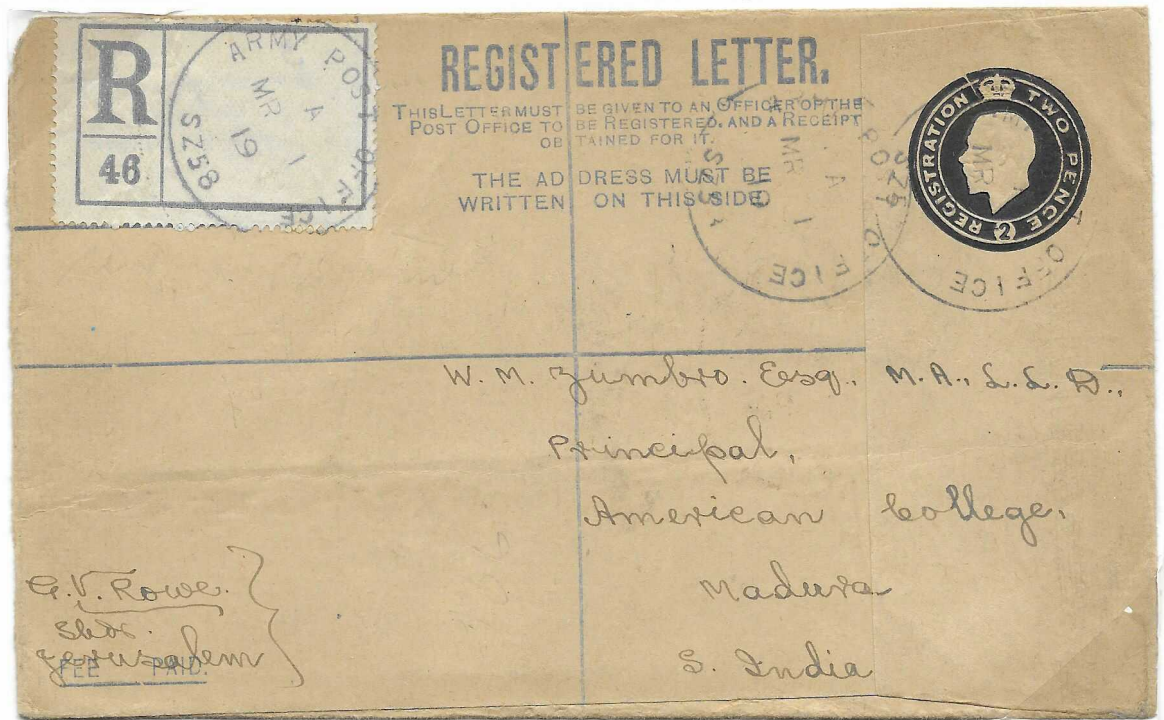 R
46
ARMY POST OFFICE
A
1
MR
19
SZ58
REGISTERED LETTER.
THIS LETTER MUST BE GIVEN TO AN OFFICER OF THE
POST OFFICE TO BE REGISTERED, AND A RECEIPT
OBTAINED FOR IT.
THE ADDRESS MUST BE
WRITTEN ON THIS SIDE
REGISTRATION TWO PENCE
2
POST OFFICE
A
1
MR
OFFICE
MR
W. M. Zumbro. Esq., M.A., L.L.D.,
Principal,
American College,
Madura
S. India
G.V. Rowe.
Jerusalem
FEE PAID.